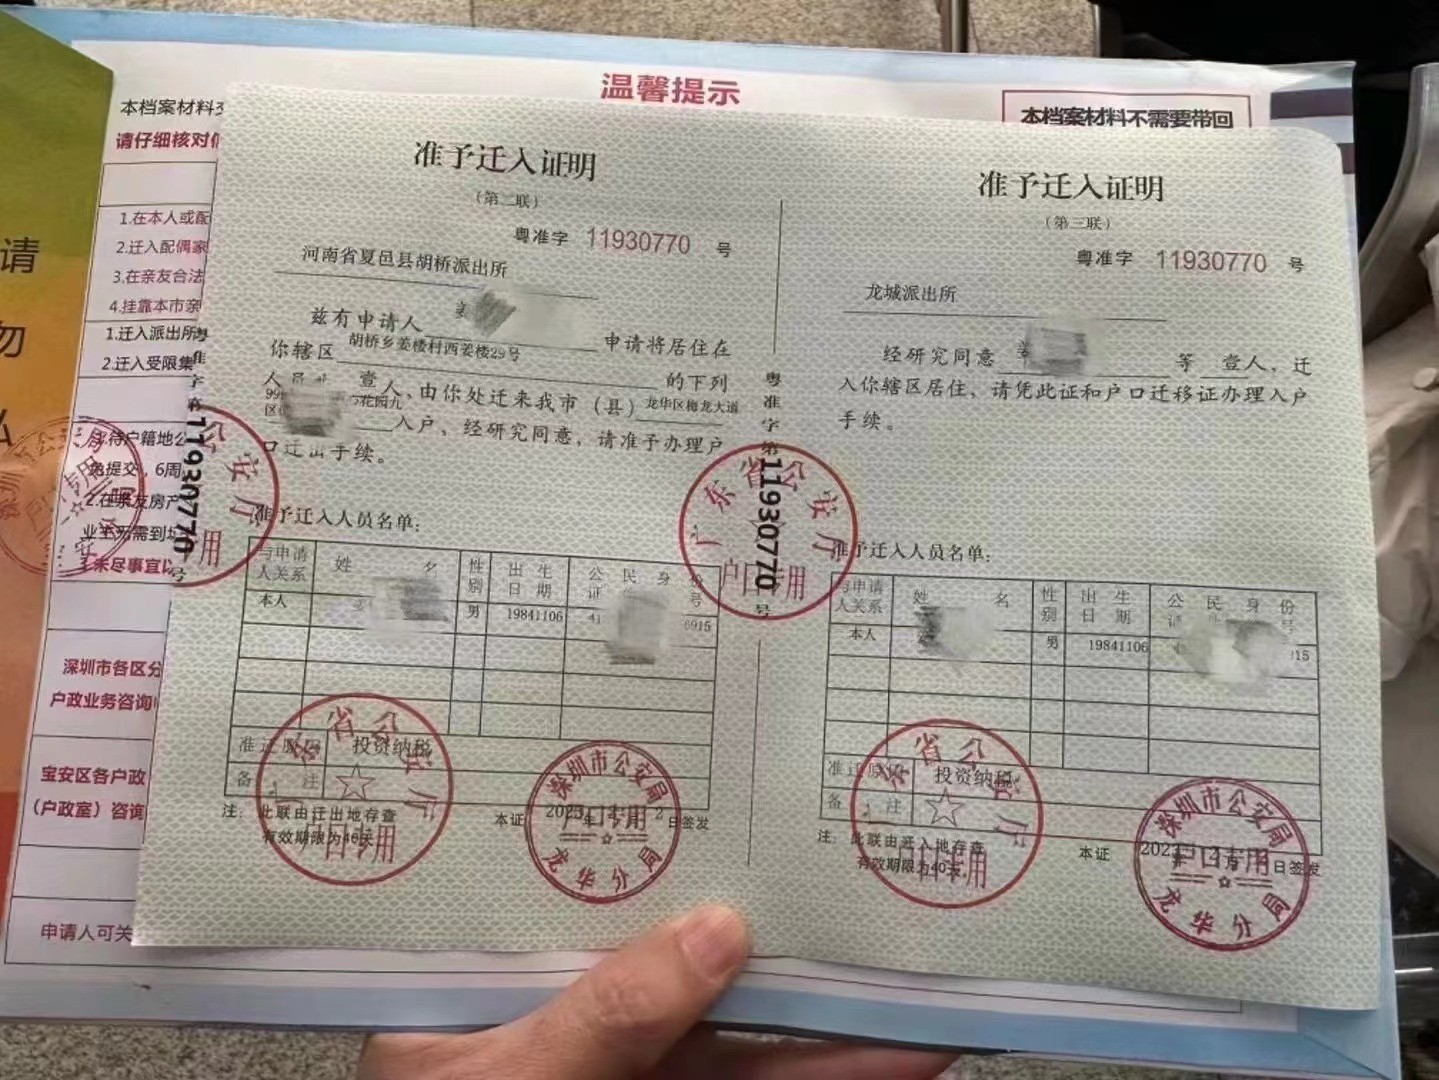 温馨提示
本档案材料
本档案材料不需要带回
请仔细核对
1.在本人或配
2.迁入配偶家
3.在亲友合法
4.挂靠本市亲
1.迁入派出所
2.迁入受限集
待户籍地公
免提交，6周
2.在亲友房产
业主无需到场
未尽事宜
深圳市各区分
户政业务咨询
宝安区各户政
（户政室）咨询
申请人可关
请
勿
准予迁入证明
（第二联）
粤准字 11930770 号
河南省夏邑县胡桥派出所
兹有申请人 申请将居住在
你辖区 胡桥乡姜楼村西姜楼29号 的下列
人员 壹人，由你处迁来我市（县）龙华区梅龙大道
花园九
入户，经研究同意，请准予办理户
口迁出手续。
准予迁入人员名单：
与申请人关系 姓名 性别 出生日期 公民身份证号
本人 男 19841106 41 6915
准迁原因 投资纳税
备注
注：此联由迁出地存查
有效期限为40天
本证 2023年 月 2日签发
粤准字第11930770号
广东省公安厅
户口专用
深圳市公安局
户口专用
龙华分局
准予迁入证明
（第三联）
粤准字 11930770 号
龙城派出所
经研究同意 姜 等 壹人，迁
入你辖区居住，请凭此证和户口迁移证办理入户
手续。
准予迁入人员名单：
与申请人关系 姓名 性别 出生日期 公民身份证号
本人 男 19841106 15
准迁原因 投资纳税
备注
注：此联由迁入地存查
有效期限为40天
本证 日签发
省公安厅
户口专用
深圳市公安局
户口专用
龙华分局